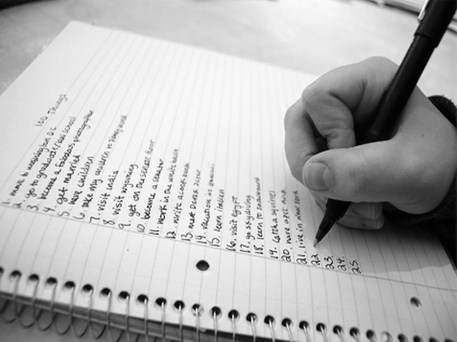 100 Things
1. move to washington D.C.
2. go to graduate/law school
3. become a fabulous photographer
4. get married
5. have children
6. take my children to disney world
7. visit india
8. visit
9. go on the
10. become a teacher
11. work in the white house
12. write a
13. meet
14. vacation in
15. learn italian
16. visit egypt
17. go skydiving
18. learn to snowboard
19. catch a
20. have
21. live in new york
22.
23.
24.
25.